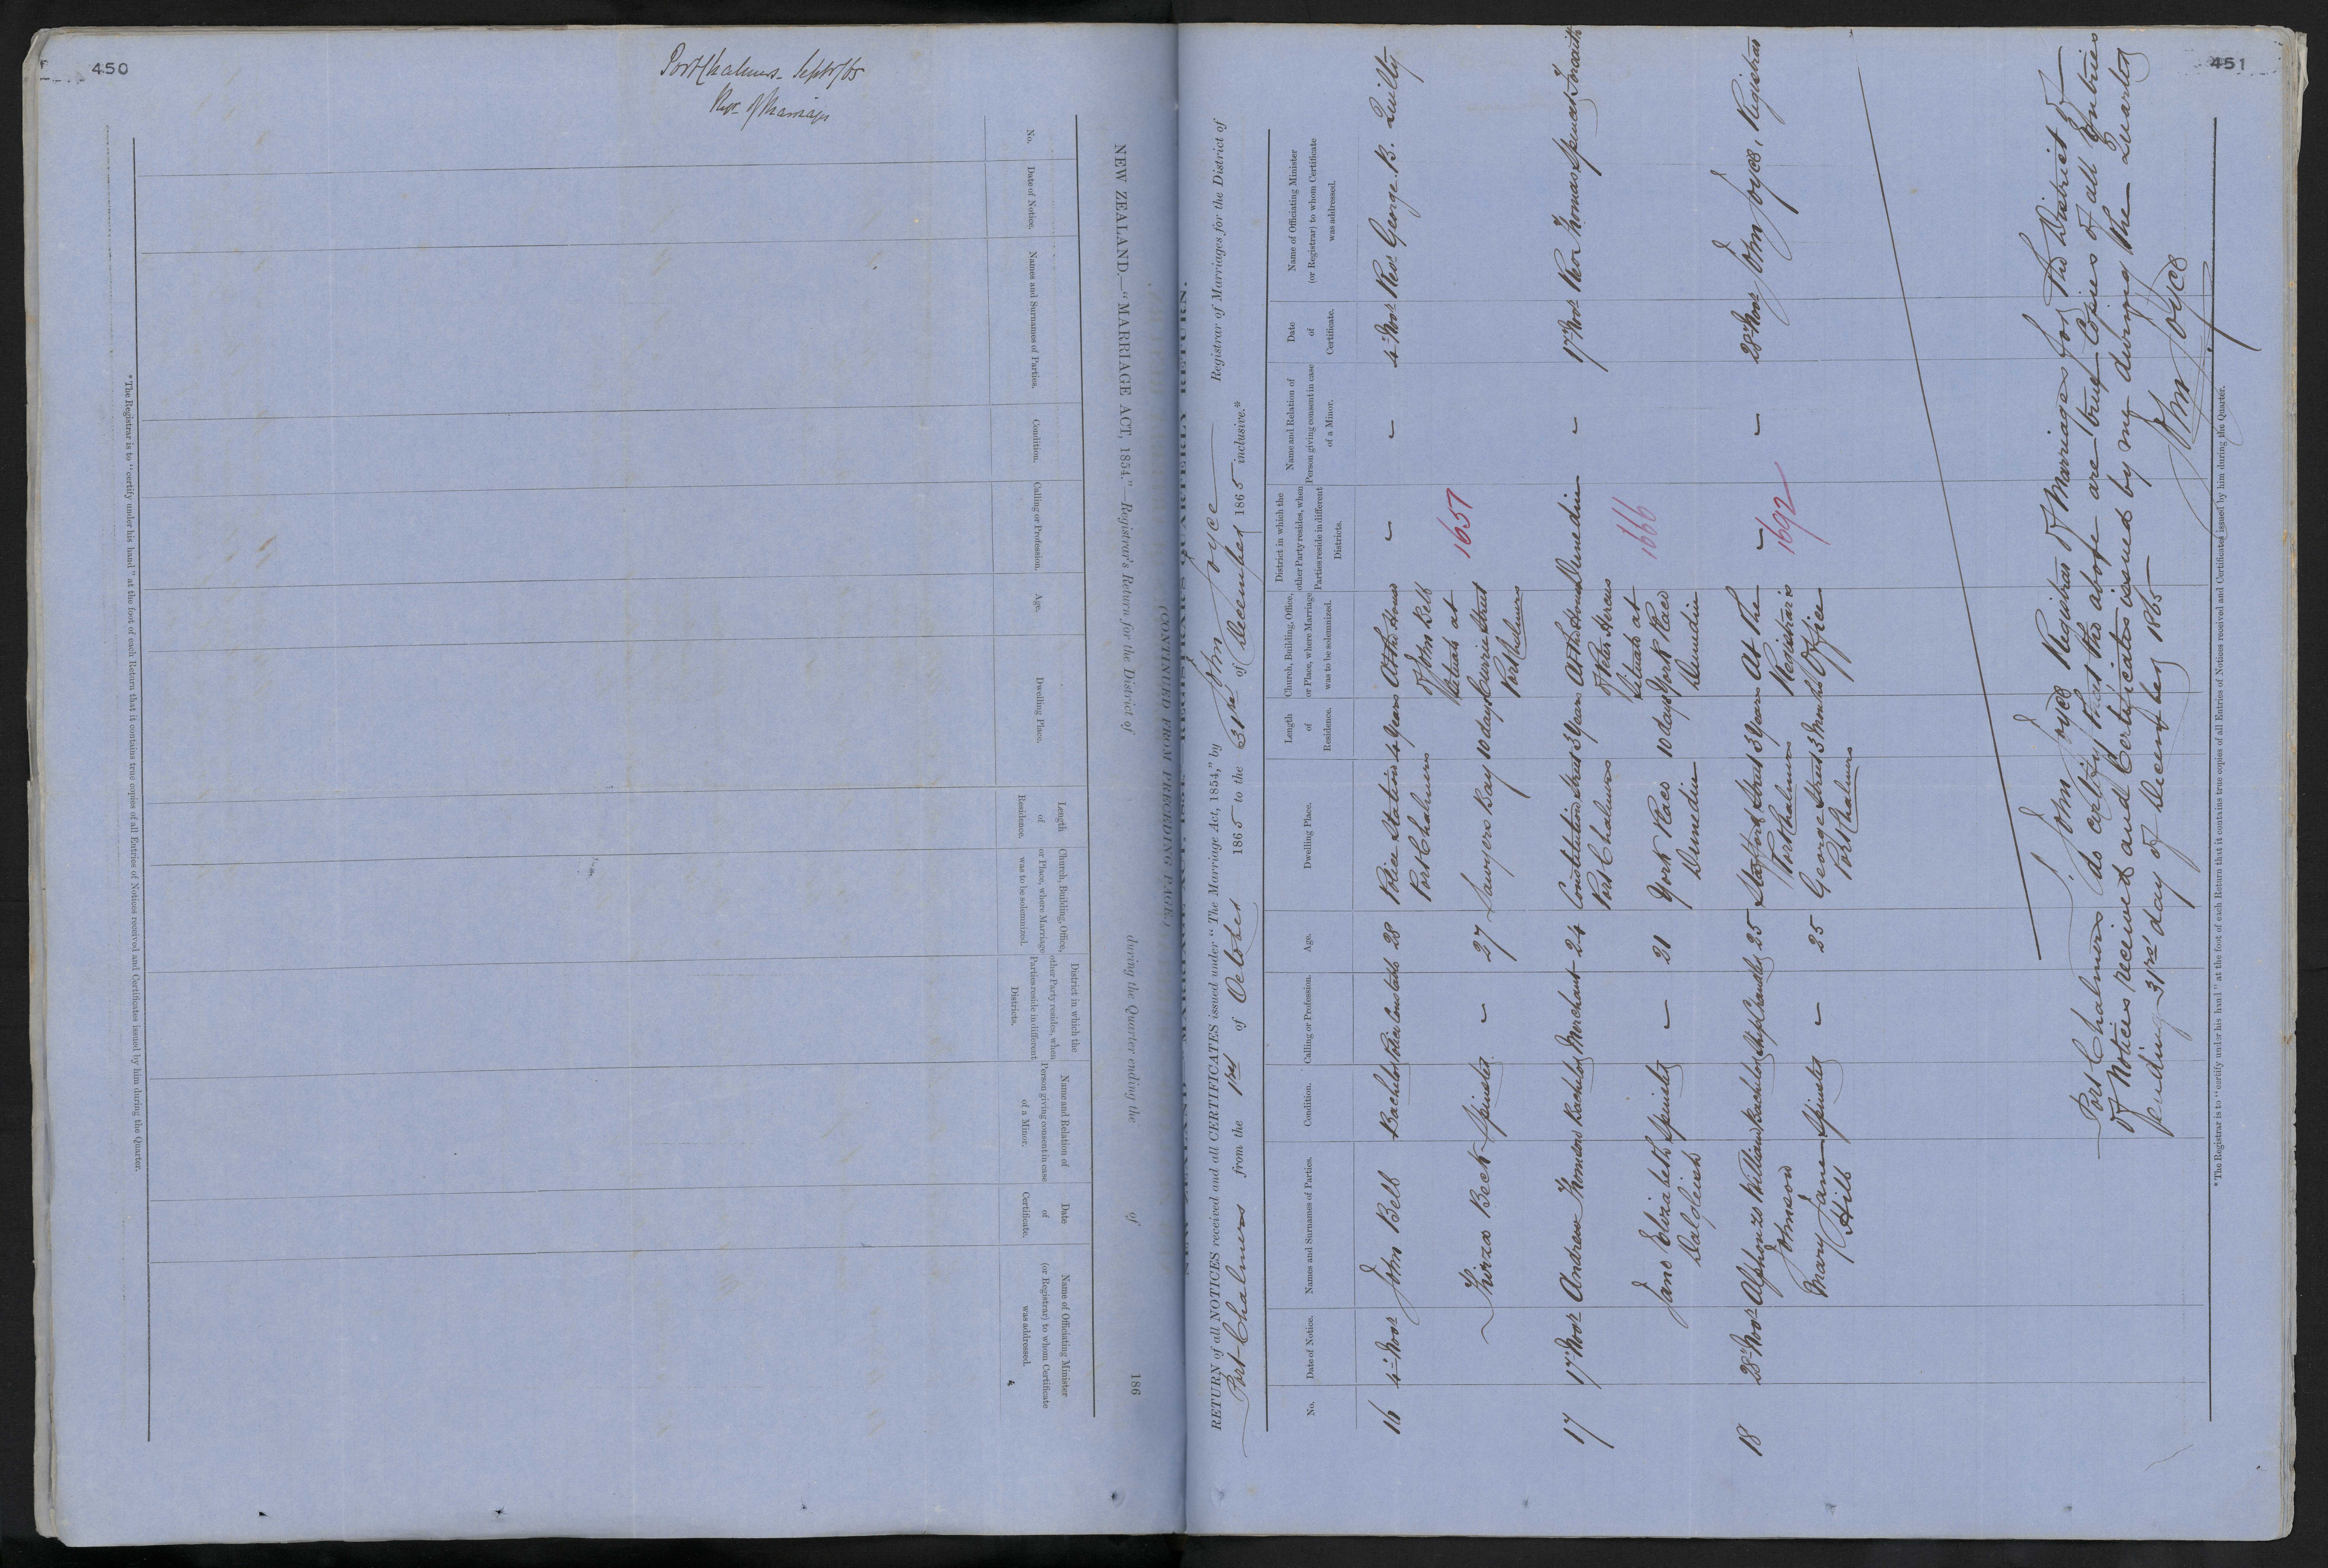 450
Port Chalmers - Septr/65
NEW ZEALAND.—"MARRIAGE ACT, 1854."—Registrar's Return for the District of during the Quarter ending the of 186
No.
Date of Notice.
Names and Surnames of Parties.
Condition.
Calling or Profession.
Age.
Dwelling Place.
Length of Residence.
Church, Building, Office, or Place, where Marriage was to be solemnized.
District in which the other Party resides, when Parties reside in different Districts.
Name and Relation of Person giving consent in case of a Minor.
Date of Certificate.
Name of Officiating Minister (or Registrar) to whom Certificate was addressed.
* The Registrar is to "certify under his hand" at the foot of each Return that it contains true copies of all Entries of Notices received and Certificates issued by him during the Quarter.
451
(CONTINUED FROM PRECEDING PAGE.)
RETURN of all NOTICES received and all CERTIFICATES issued under "The Marriage Act, 1854," by John Joyce Registrar of Marriages for the District of
Port Chalmers from the 1st of October 1865 to the 31st of December 1865 inclusive.*
No.
Date of Notice.
Names and Surnames of Parties.
Condition.
Calling or Profession.
Age.
Dwelling Place.
Length of Residence.
Church, Building, Office, or Place, where Marriage was to be solemnized.
District in which the other Party resides, when Parties reside in different Districts.
Name and Relation of Person giving consent in case of a Minor.
Date of Certificate.
Name of Officiating Minister (or Registrar) to whom Certificate was addressed.
16 4 Novr John Bell Bachelor Police Constable 28 Police Station 4 years At the House - - 4 Novr Revr George B. Quilty
Port Chalmers of John Bell
situate at
Thirza Beck Spinster - 27 Sawyers Bay 10 days Currie Street 1657
Port Chalmers
17 17 Novr Andrew Thomson Bachelor Merchant 24 Constitution Street 3 years At the House Dunedin - 17 Novr Revr Thomas
Port Chalmers of Peter Hercus
situate at
Jane Elizabeth Spinster - 21 York Place 10 days York Place 1666
Dalgleish Dunedin Dunedin
18 28 Novr Alphonzo William Bachelor Shipchandler 25 Stafford Street 3 years At the - - 28 Novr John Joyce, Registrar
Johnson Port Chalmers Registrar's 1692
Mary Jane Spinster - 25 George Street 3 Months Office
Hill Port Chalmers
I John Joyce Registrar of Marriages for the District of
Port Chalmers do certify that the above are true Copies of all Entries
of Notices received and Certificates issued by me during the Quarter
ending 31st day of December 1865
John Joyce
* The Registrar is to "certify under his hand" at the foot of each Return that it contains true copies of all Entries of Notices received and Certificates issued by him during the Quarter.